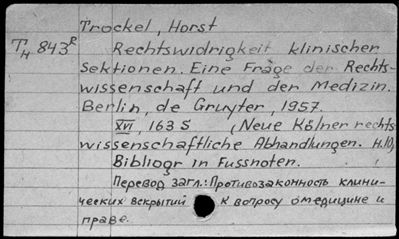 Trockel, Horst
T_H 843^R Rechtswidrigkeit klinischer
Sektionen. Eine Frage der Rechts-
wissenschaft und der Medizin.
Berlin, de Gruyter, 1957.
XVI, 163 S (Neue Kölner rechts
wissenschaftliche Abhandlungen. H.10)
Bibliogr in Fussnoten.
Перевод загл.: Противозаконность клини-
ческих вскрытий к вопросу о медицине и
праве.